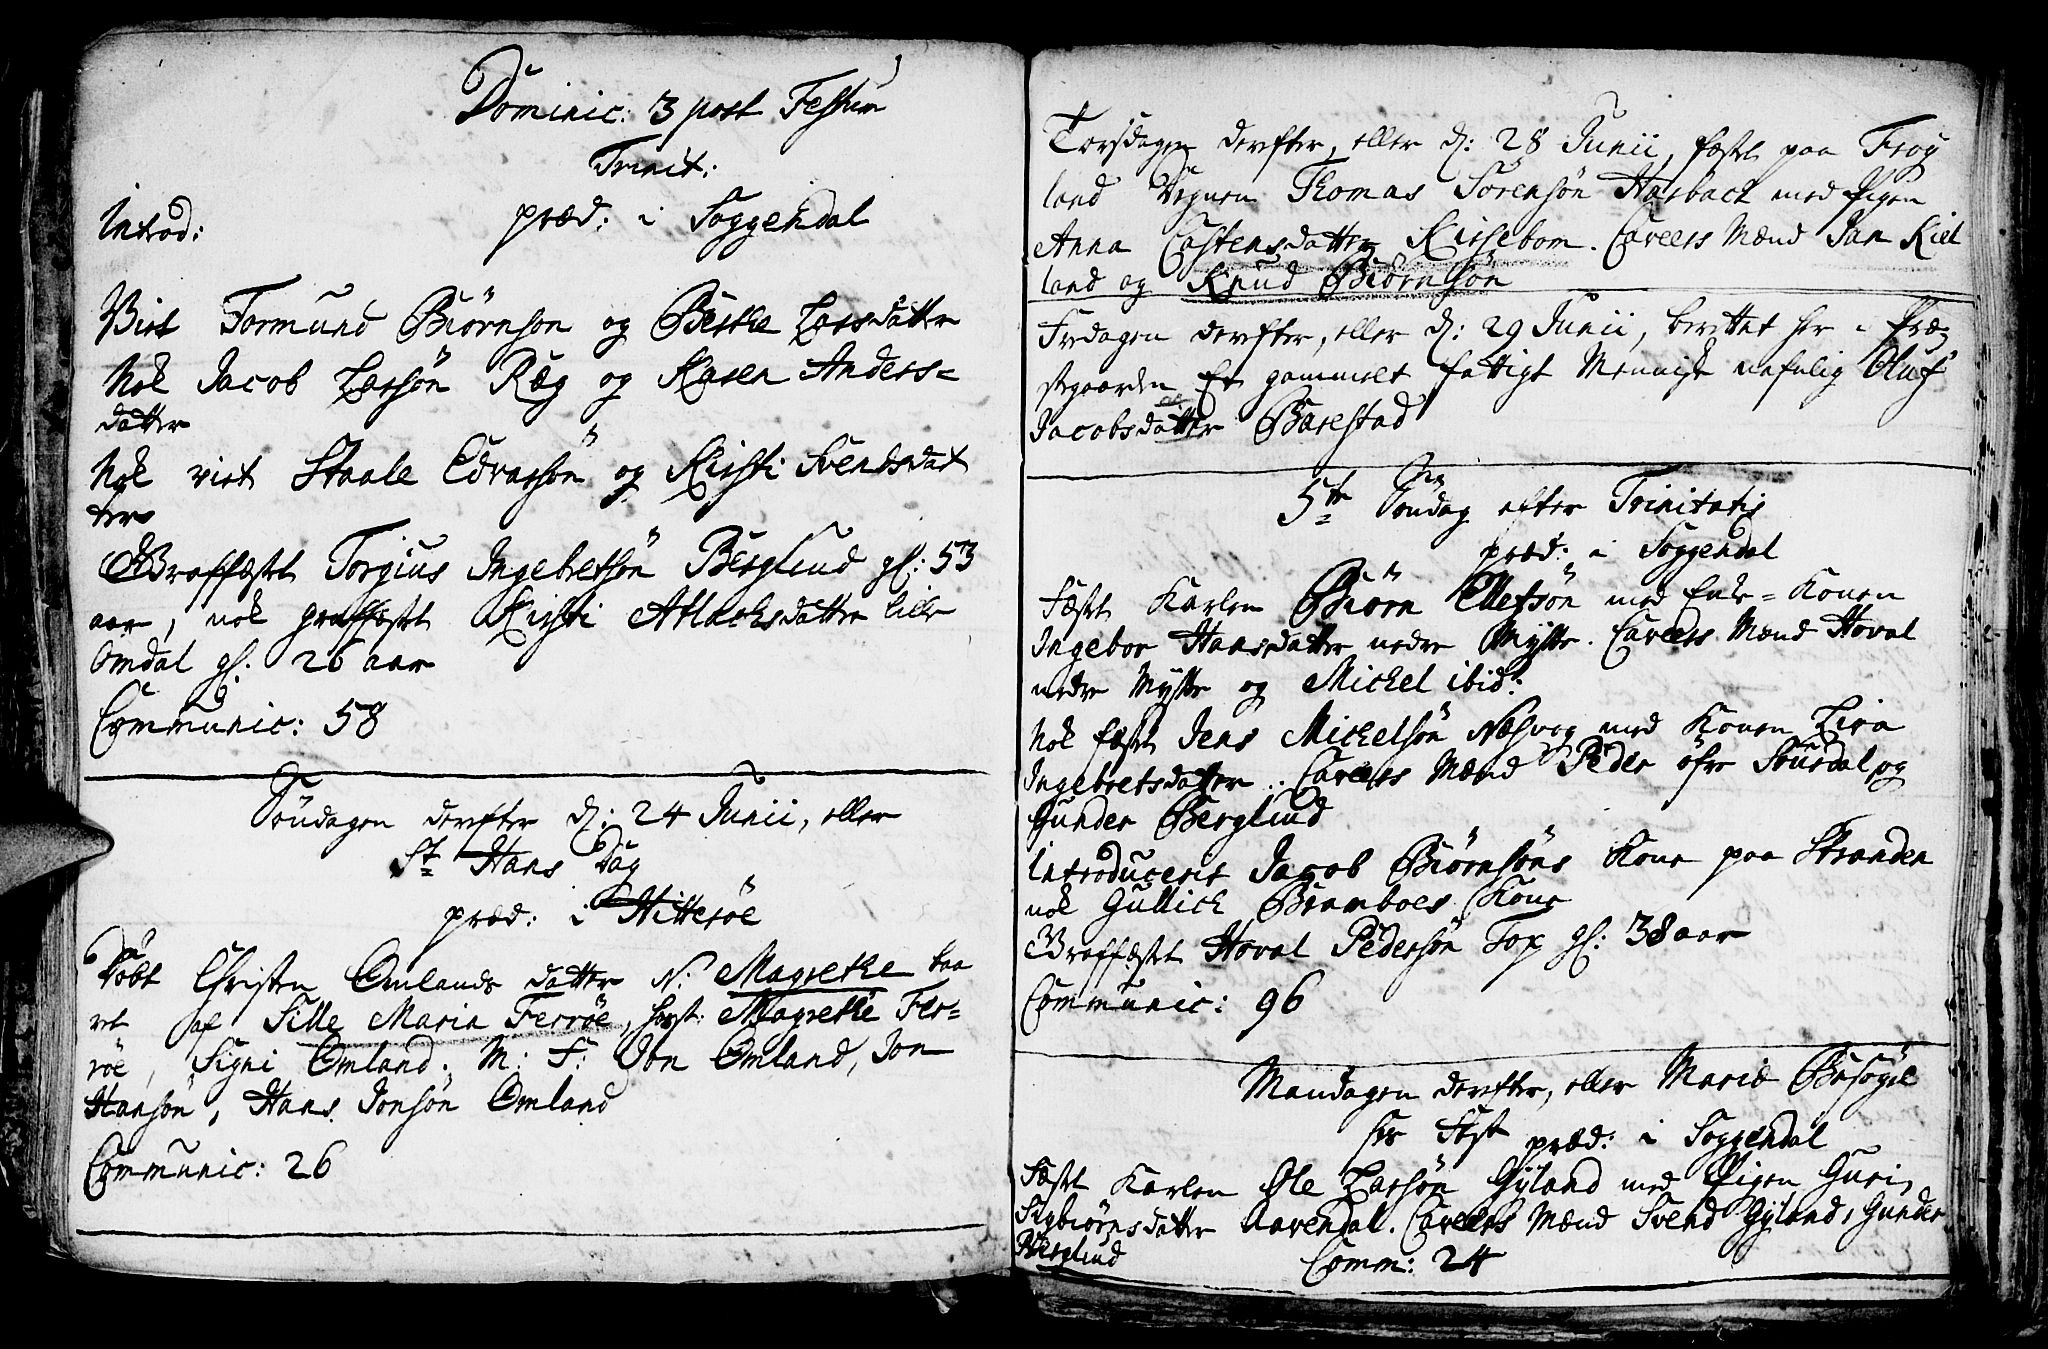 Dominic: 3 post Festum
Trinit:
præd: i Soggendal
Introd:
Viet Tormund Biörnsön og Birthe Larsdatter
Nok Jacob Larsön Ræg og Karen Anders=
datter
Nok viet Staale Edvarsön og Kirsti Svendsdat
ter
Graffæstet Torgius Ingebretsön Berglund gl: 53
aar, nok graffæstet Kirsti Atlachsdatter lille
Omdal gl: 26 aar
Communic: 58
Söndagen derefter d: 24 Junii, eller
St= Hans Dag
præd: i Hitteröe
Döbt Christen Omlands datter N: Magrethe baa
ret af Sille Maria Ferröe, host: Magrethe Fer=
röe, Signi Omland. M: F: Jon Omland, Jon
Hansön, Hans Jonsön Omland
Communic: 26
Torsdagen derefter, eller d: 28 Junii, fæstet paa Frøy
land Degnen Thomas Sörensön Harback med Pigen
Anna Castensdatter Kirsebom. Caveers Mænd Jan Kiel
land og Knud Biörnsön
Fredagen derefter, eller d: 29 Junii, berettet her i Præ=
stegaarden Et gammelt fattigt Menniske nafnlig Oluf
Jacobsdatter Barestad
5te= Söndag efter Trinitatis
præd: i Soggendal
Fæstet Karlen Biörn Ellefsön med Enke=Konen
Ingebor Hansdatter nedre Mysse. Caveers Mænd Hoval
nedre Mysse og Michel ibid:
Nok fæstet Jens Michelsön Næsvog med Konen Zira
Ingebretsdatter. Caveers Mænd Peder öfre Skusdal og
Gunder Berglund
Introducerit Jacob Biörnsöns Kone paa Stranden
nok Gullick Bramboes Kone
Graffæstet Hoval Pedersön Top gl: 38 aar
Communic: 96
Mandagen derefter, eller Mariæ Besögel
ses Fest præd: i Soggendal
Fæstet Karlen Ole Larsön Gyland med Pigen Guri
Sigbiörnsdatter Aavendal. Caveers Mænd Svend Gyland, Gunder
Berglund Comm: 24